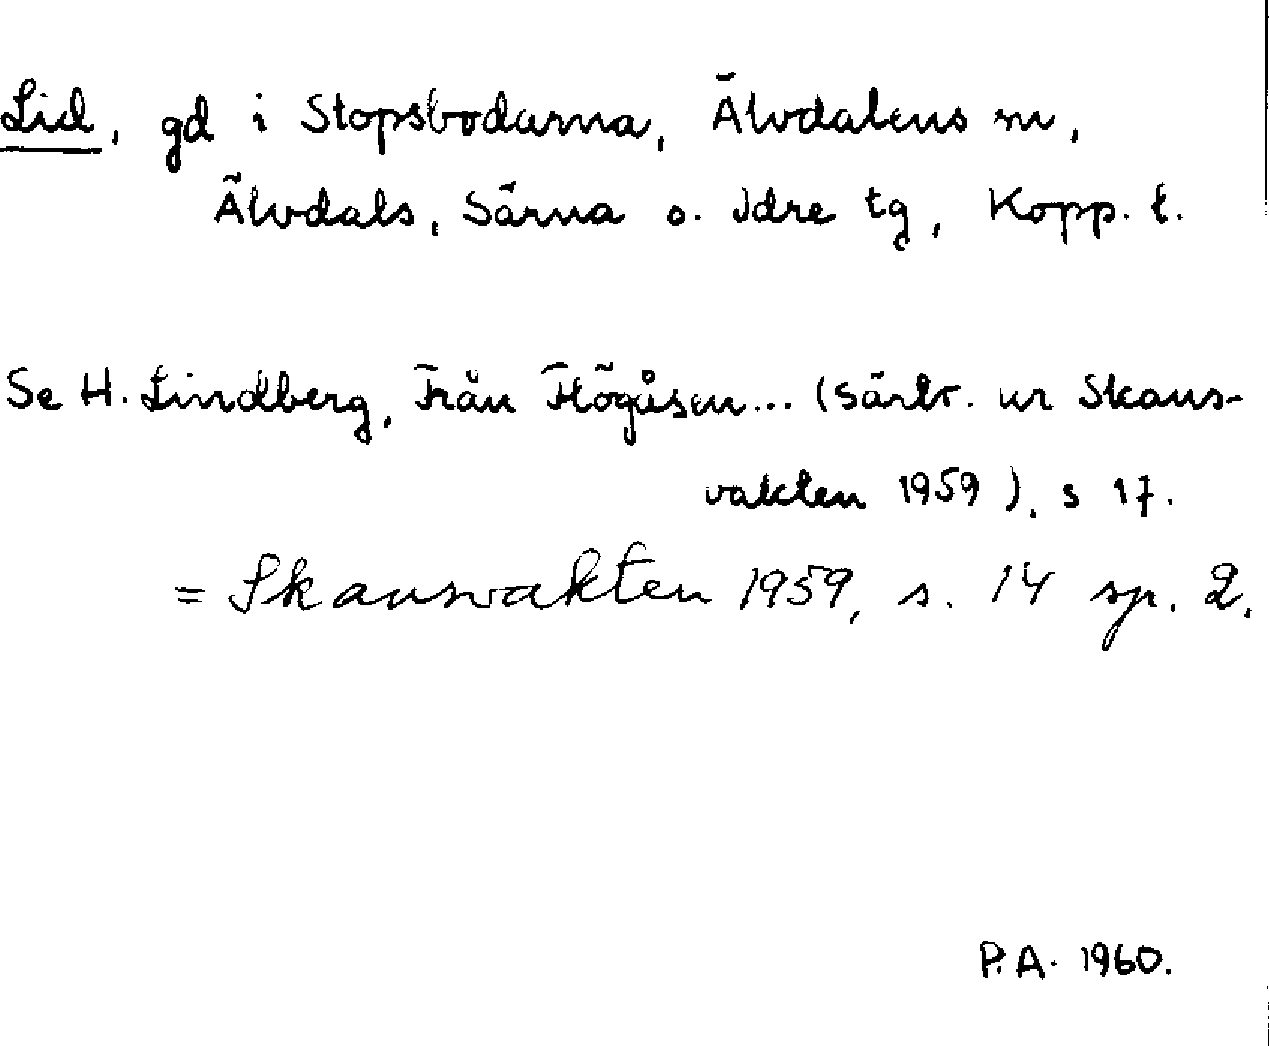 Lid, gd i Stopsbodarna, Älvdalens sn,
Älvdals, Särna o. Idre tg, Kopp. l.
Se H. Lindberg, Från Högåsen... (särtr. ur Skans-
vakten 1959), s 17.
= Skansvakten 1959, s. 14 sp. 2.
P.A. 1960.